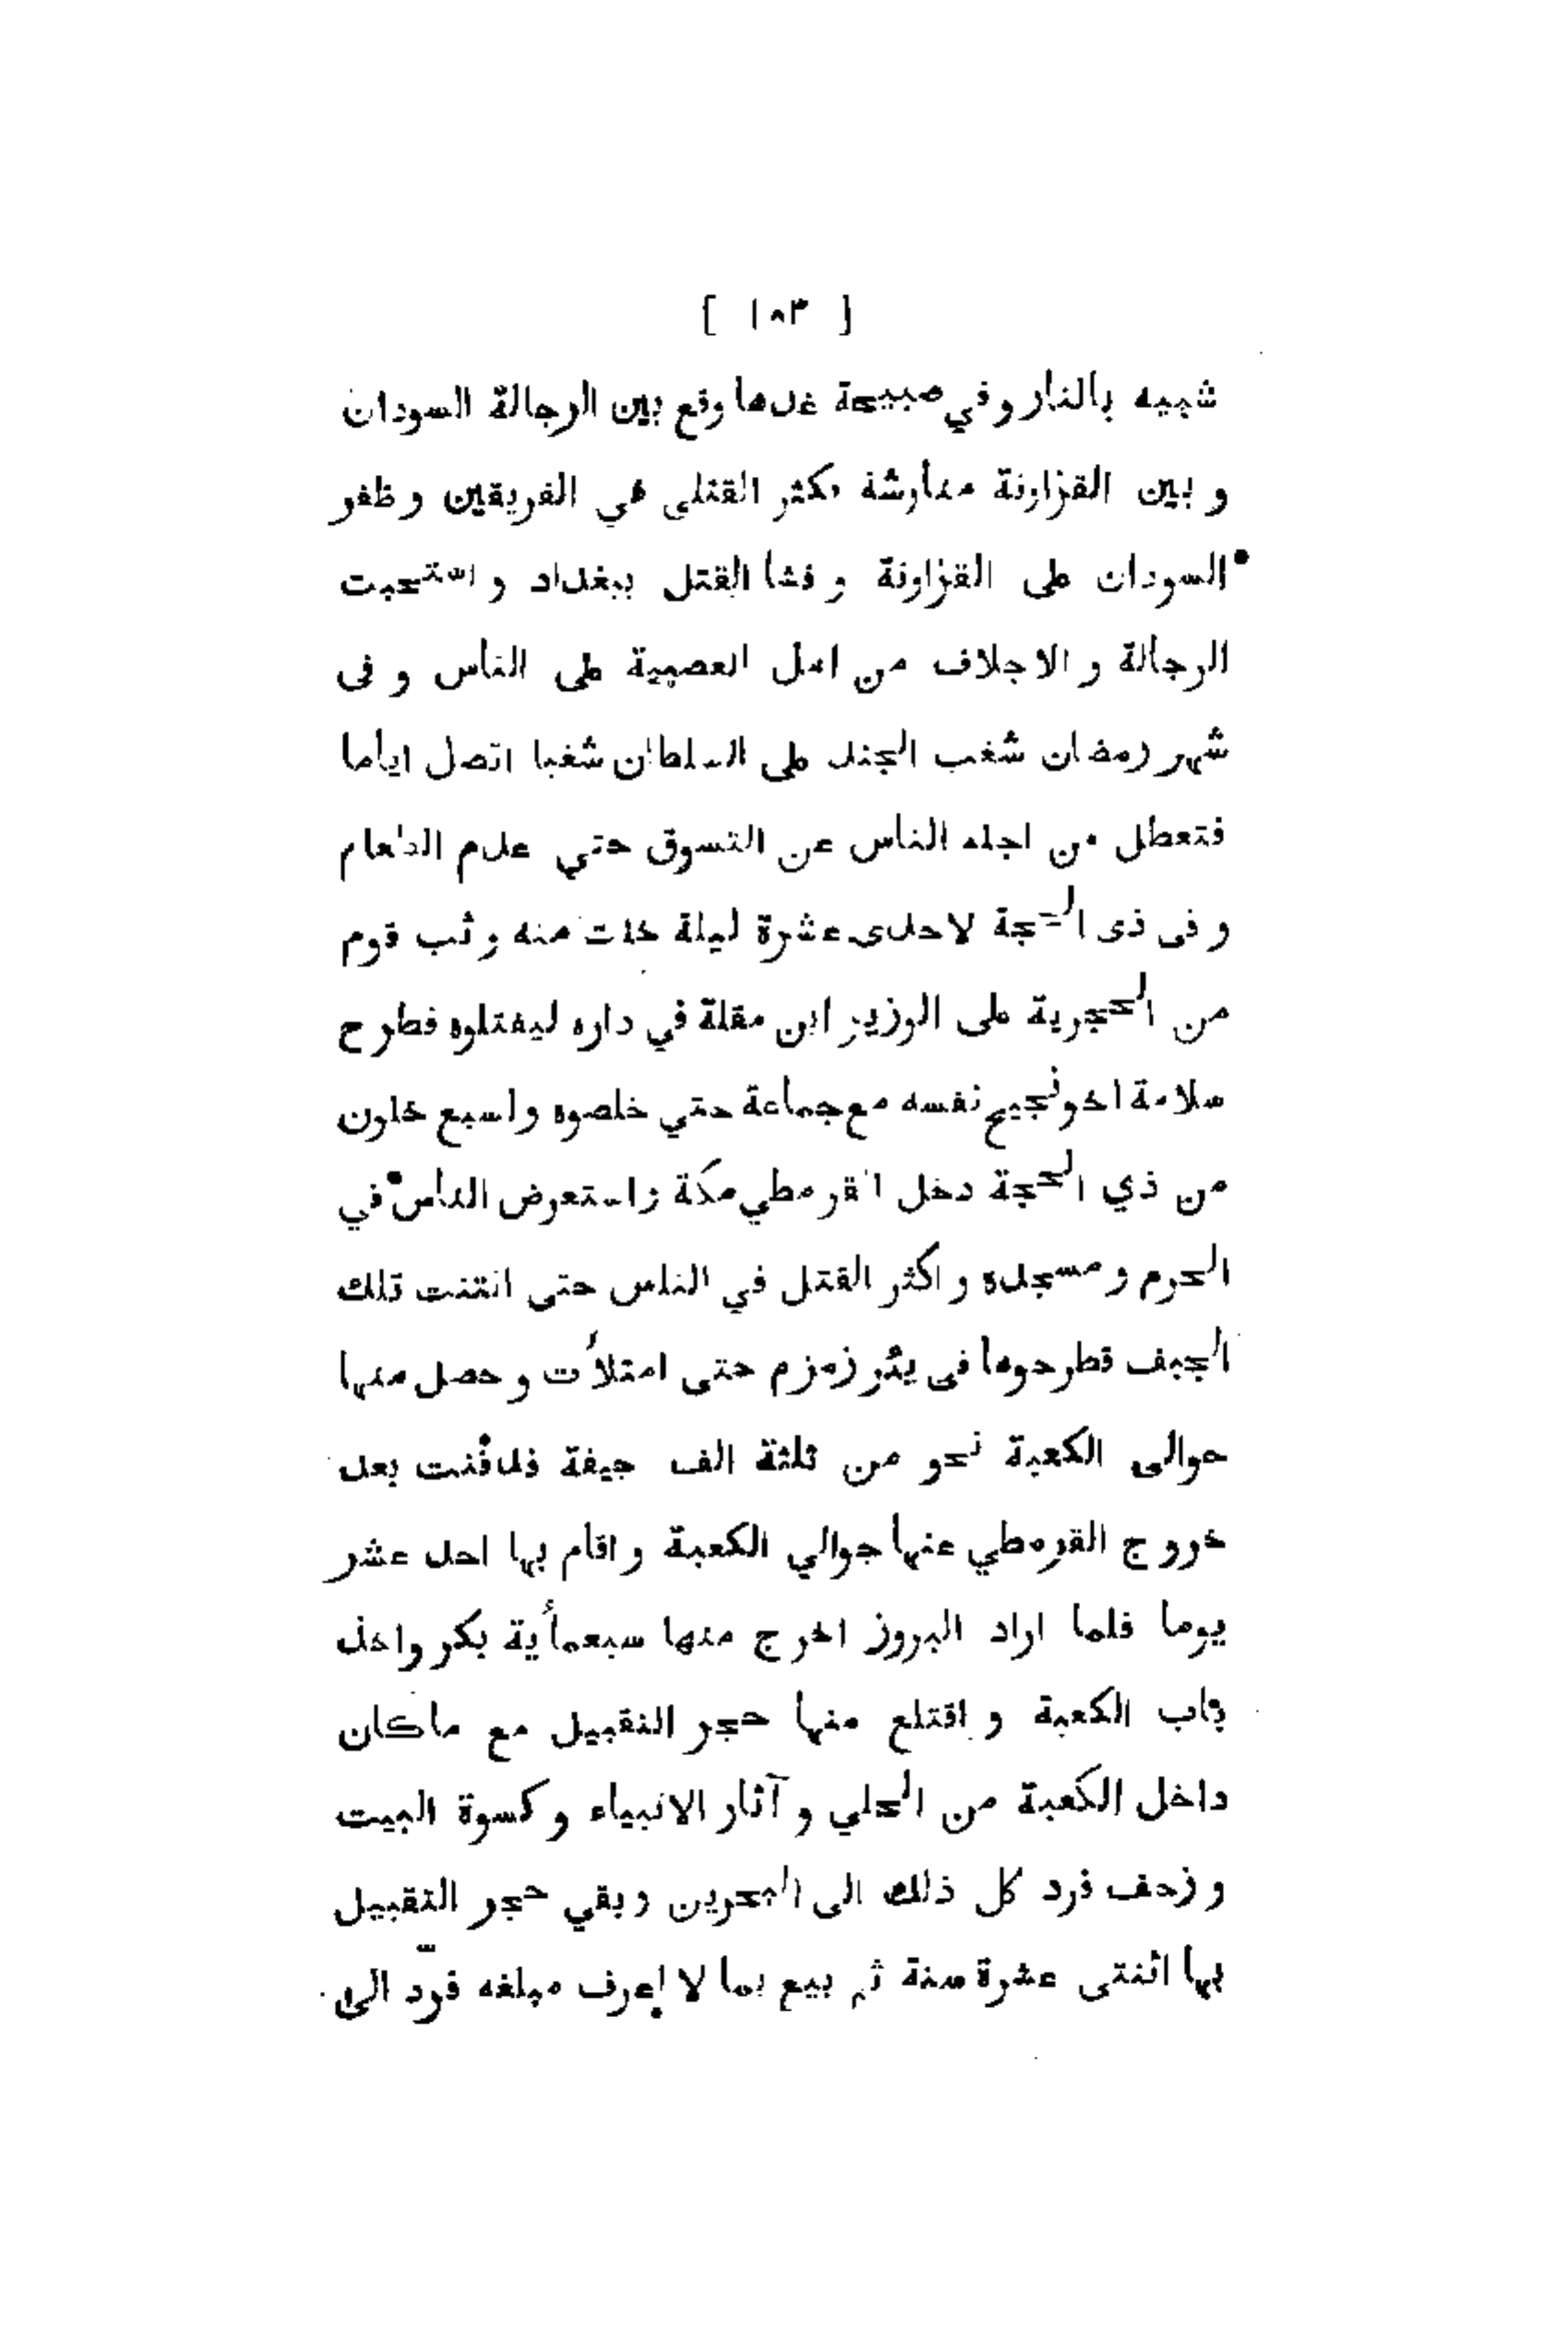 [ ١٨٣ ]
شبيه بالنار وفي صبيحة غدها وقع بين الرجالة السودان
و بين القزاونة مناوشة فكثر القتلى في الفريقين و ظفر
السودان على القزاونة و فشا القتل ببغداد و استحبت
الرجالة و الاجلاف من اهل العصبية على الناس و فى
شهر رمضان شغب الجند على السلطان شغبا اتصل اياما
فتعطل من اجله الناس عن التسوق حتي عدم الطعام
و فى ذى الحجة لاحدى عشرة ليلة خلت منه وثب قوم
من الحجرية على الوزير ابن مقلة في داره ليقتلوه فطرح
سلامة اخو نجيح نفسه مع جماعة حتي خلصوه ولسبع خلون
من ذي الحجة دخل القرمطي مكة واستعرض الناس في
الحرم و مسجده و اكثر القتل في الناس حتى انتنت تلك
الجيف فطرحوها فى بئر زمزم حتى امتلأت و حصل منها
حوالى الكعبة نحو من ثلثة الف جيفة فدفنت بعد
خروج القرمطي عنها حوالي الكعبة و اقام بها احد عشر
يوما فلما اراد البروز اخرج منها سبعمأية بكر واخذ
باب الكعبة و اقتلع منها حجر التقبيل مع ماكان
داخل الكعبة من الحلي و آثار الانبياء و كسوة البيت
و زحف فرد كل ذلك الى البحرين وبقي حجر التقبيل
بها اثنتى عشرة سنة ثم بيع بما لا اعرف مبلغه فردّ الى